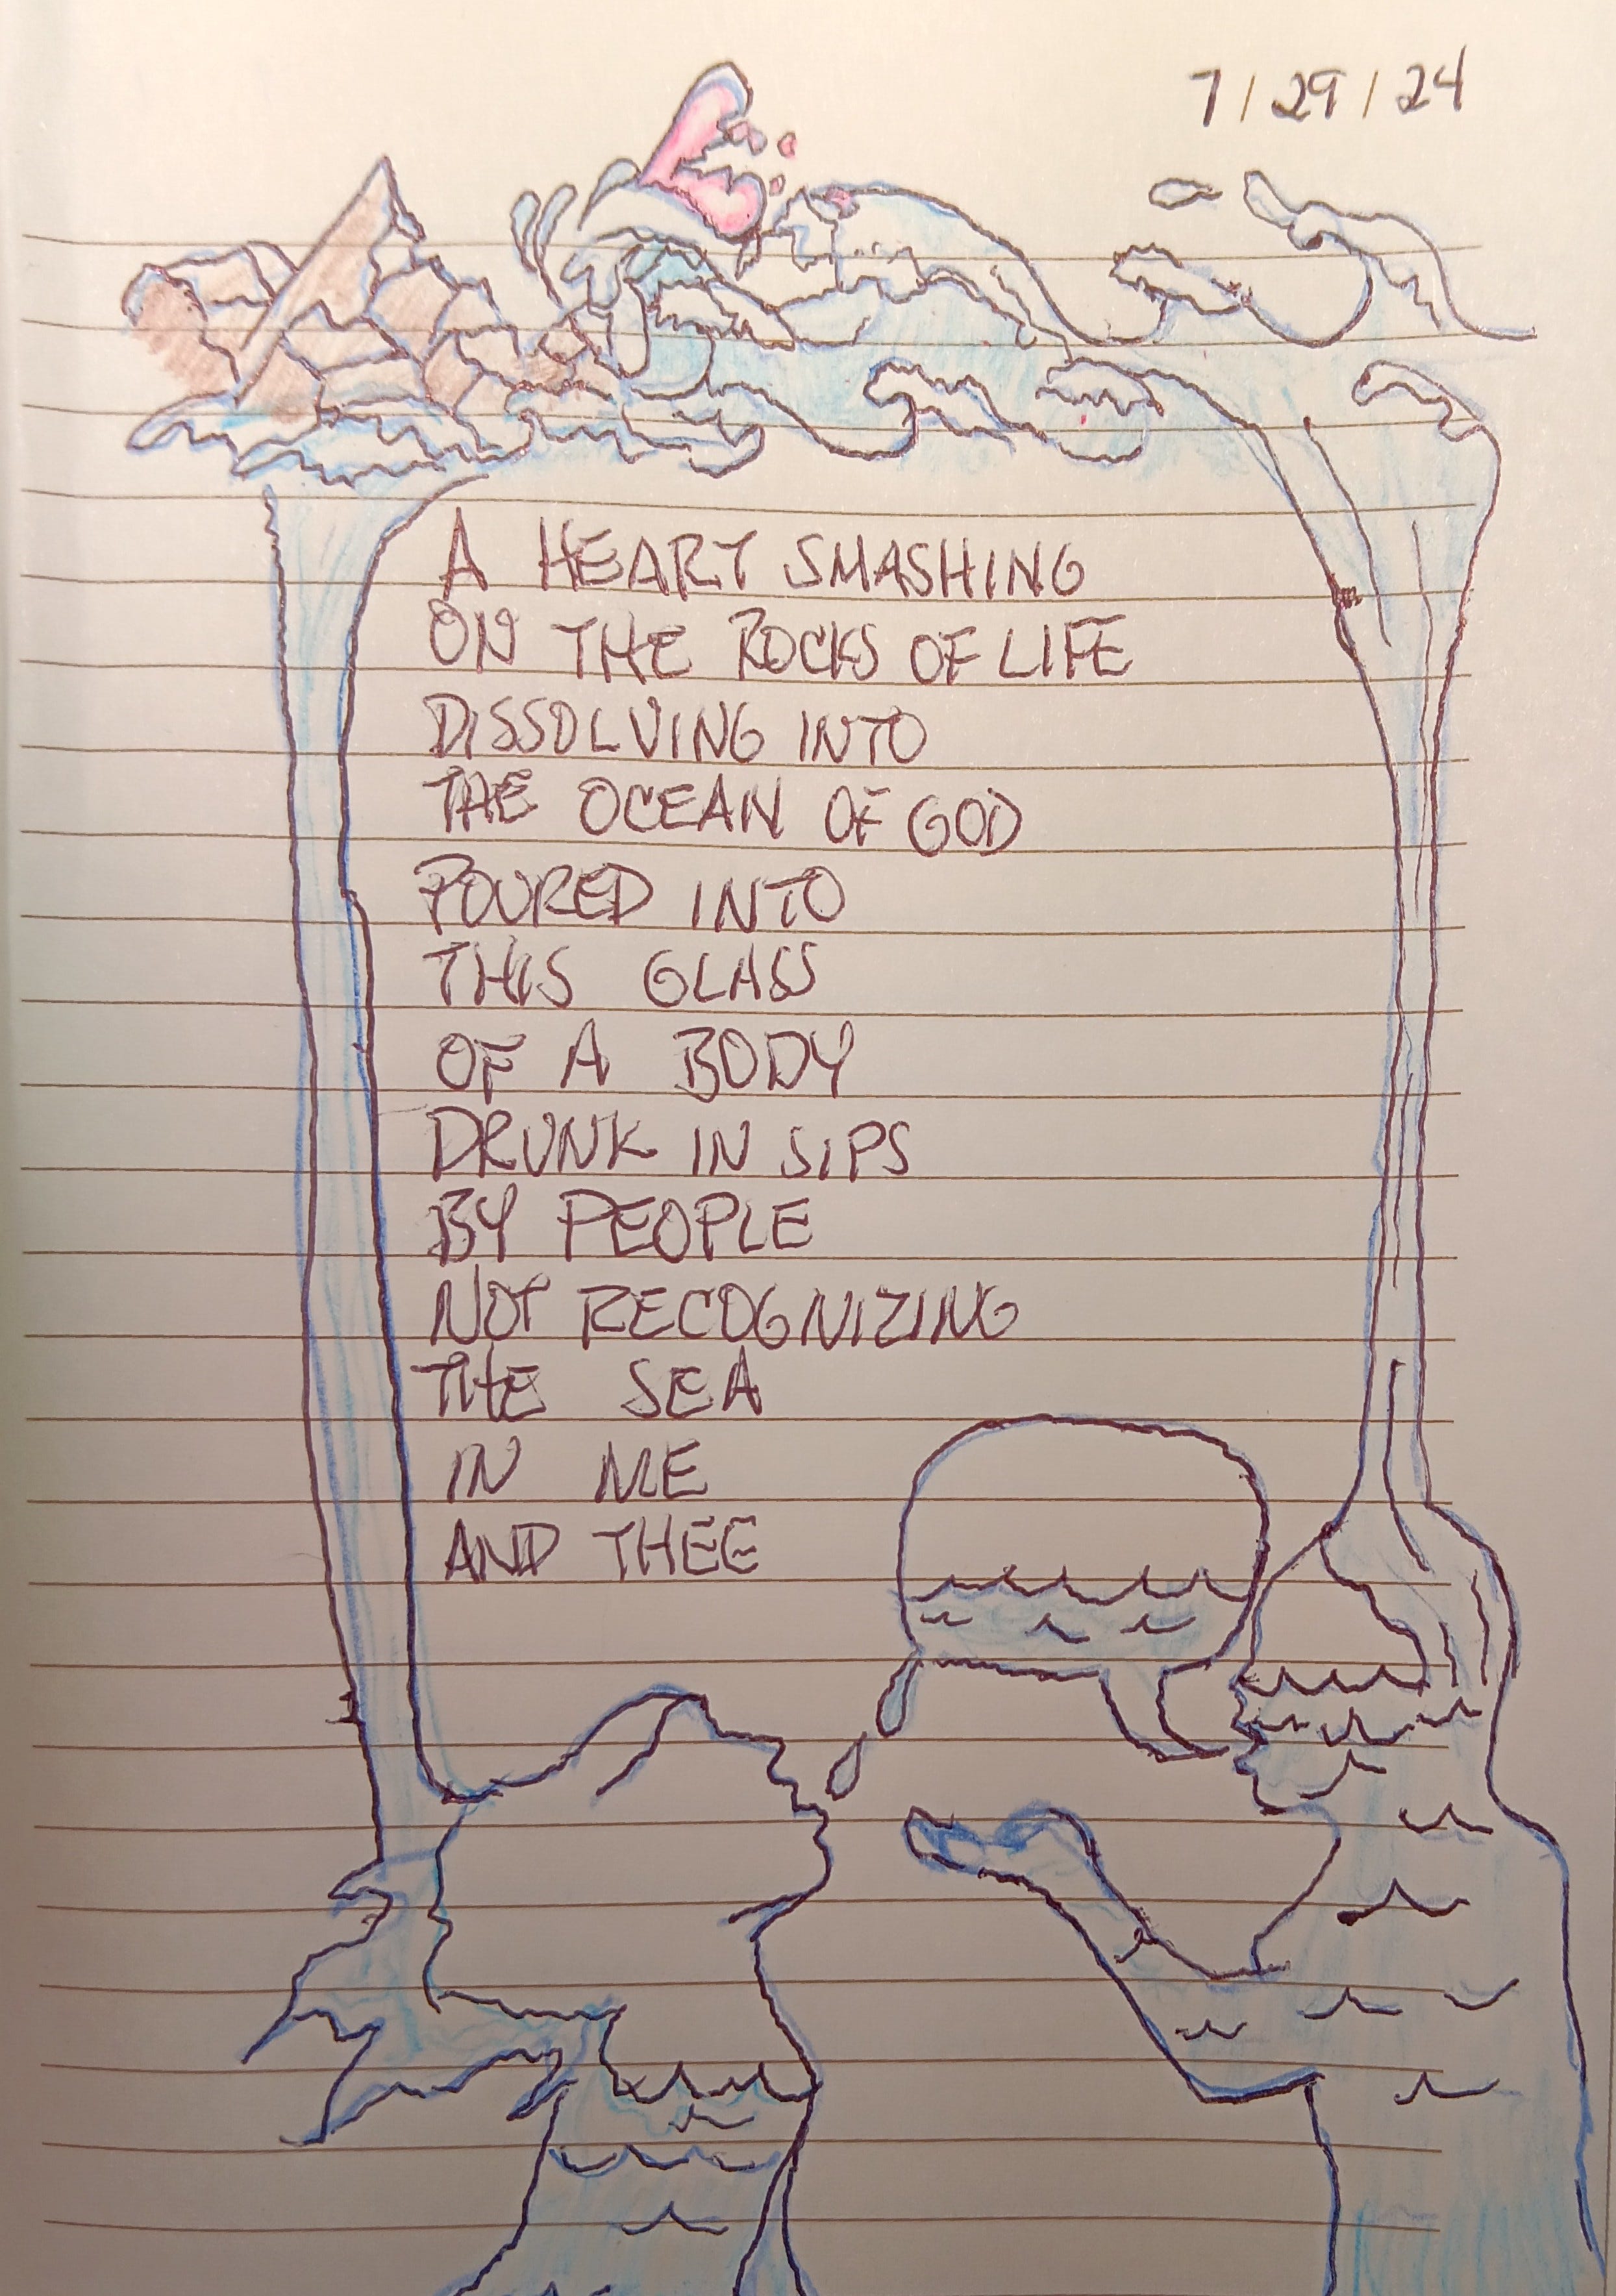 7/29/24
A HEART SMASHING
ON THE ROCKS OF LIFE
DISSOLVING INTO
THE OCEAN OF GOD
POURED INTO
THIS GLASS
OF A BODY
DRUNK IN SIPS
BY PEOPLE
NOT RECOGNIZING
THE SEA
IN ME
AND THEE